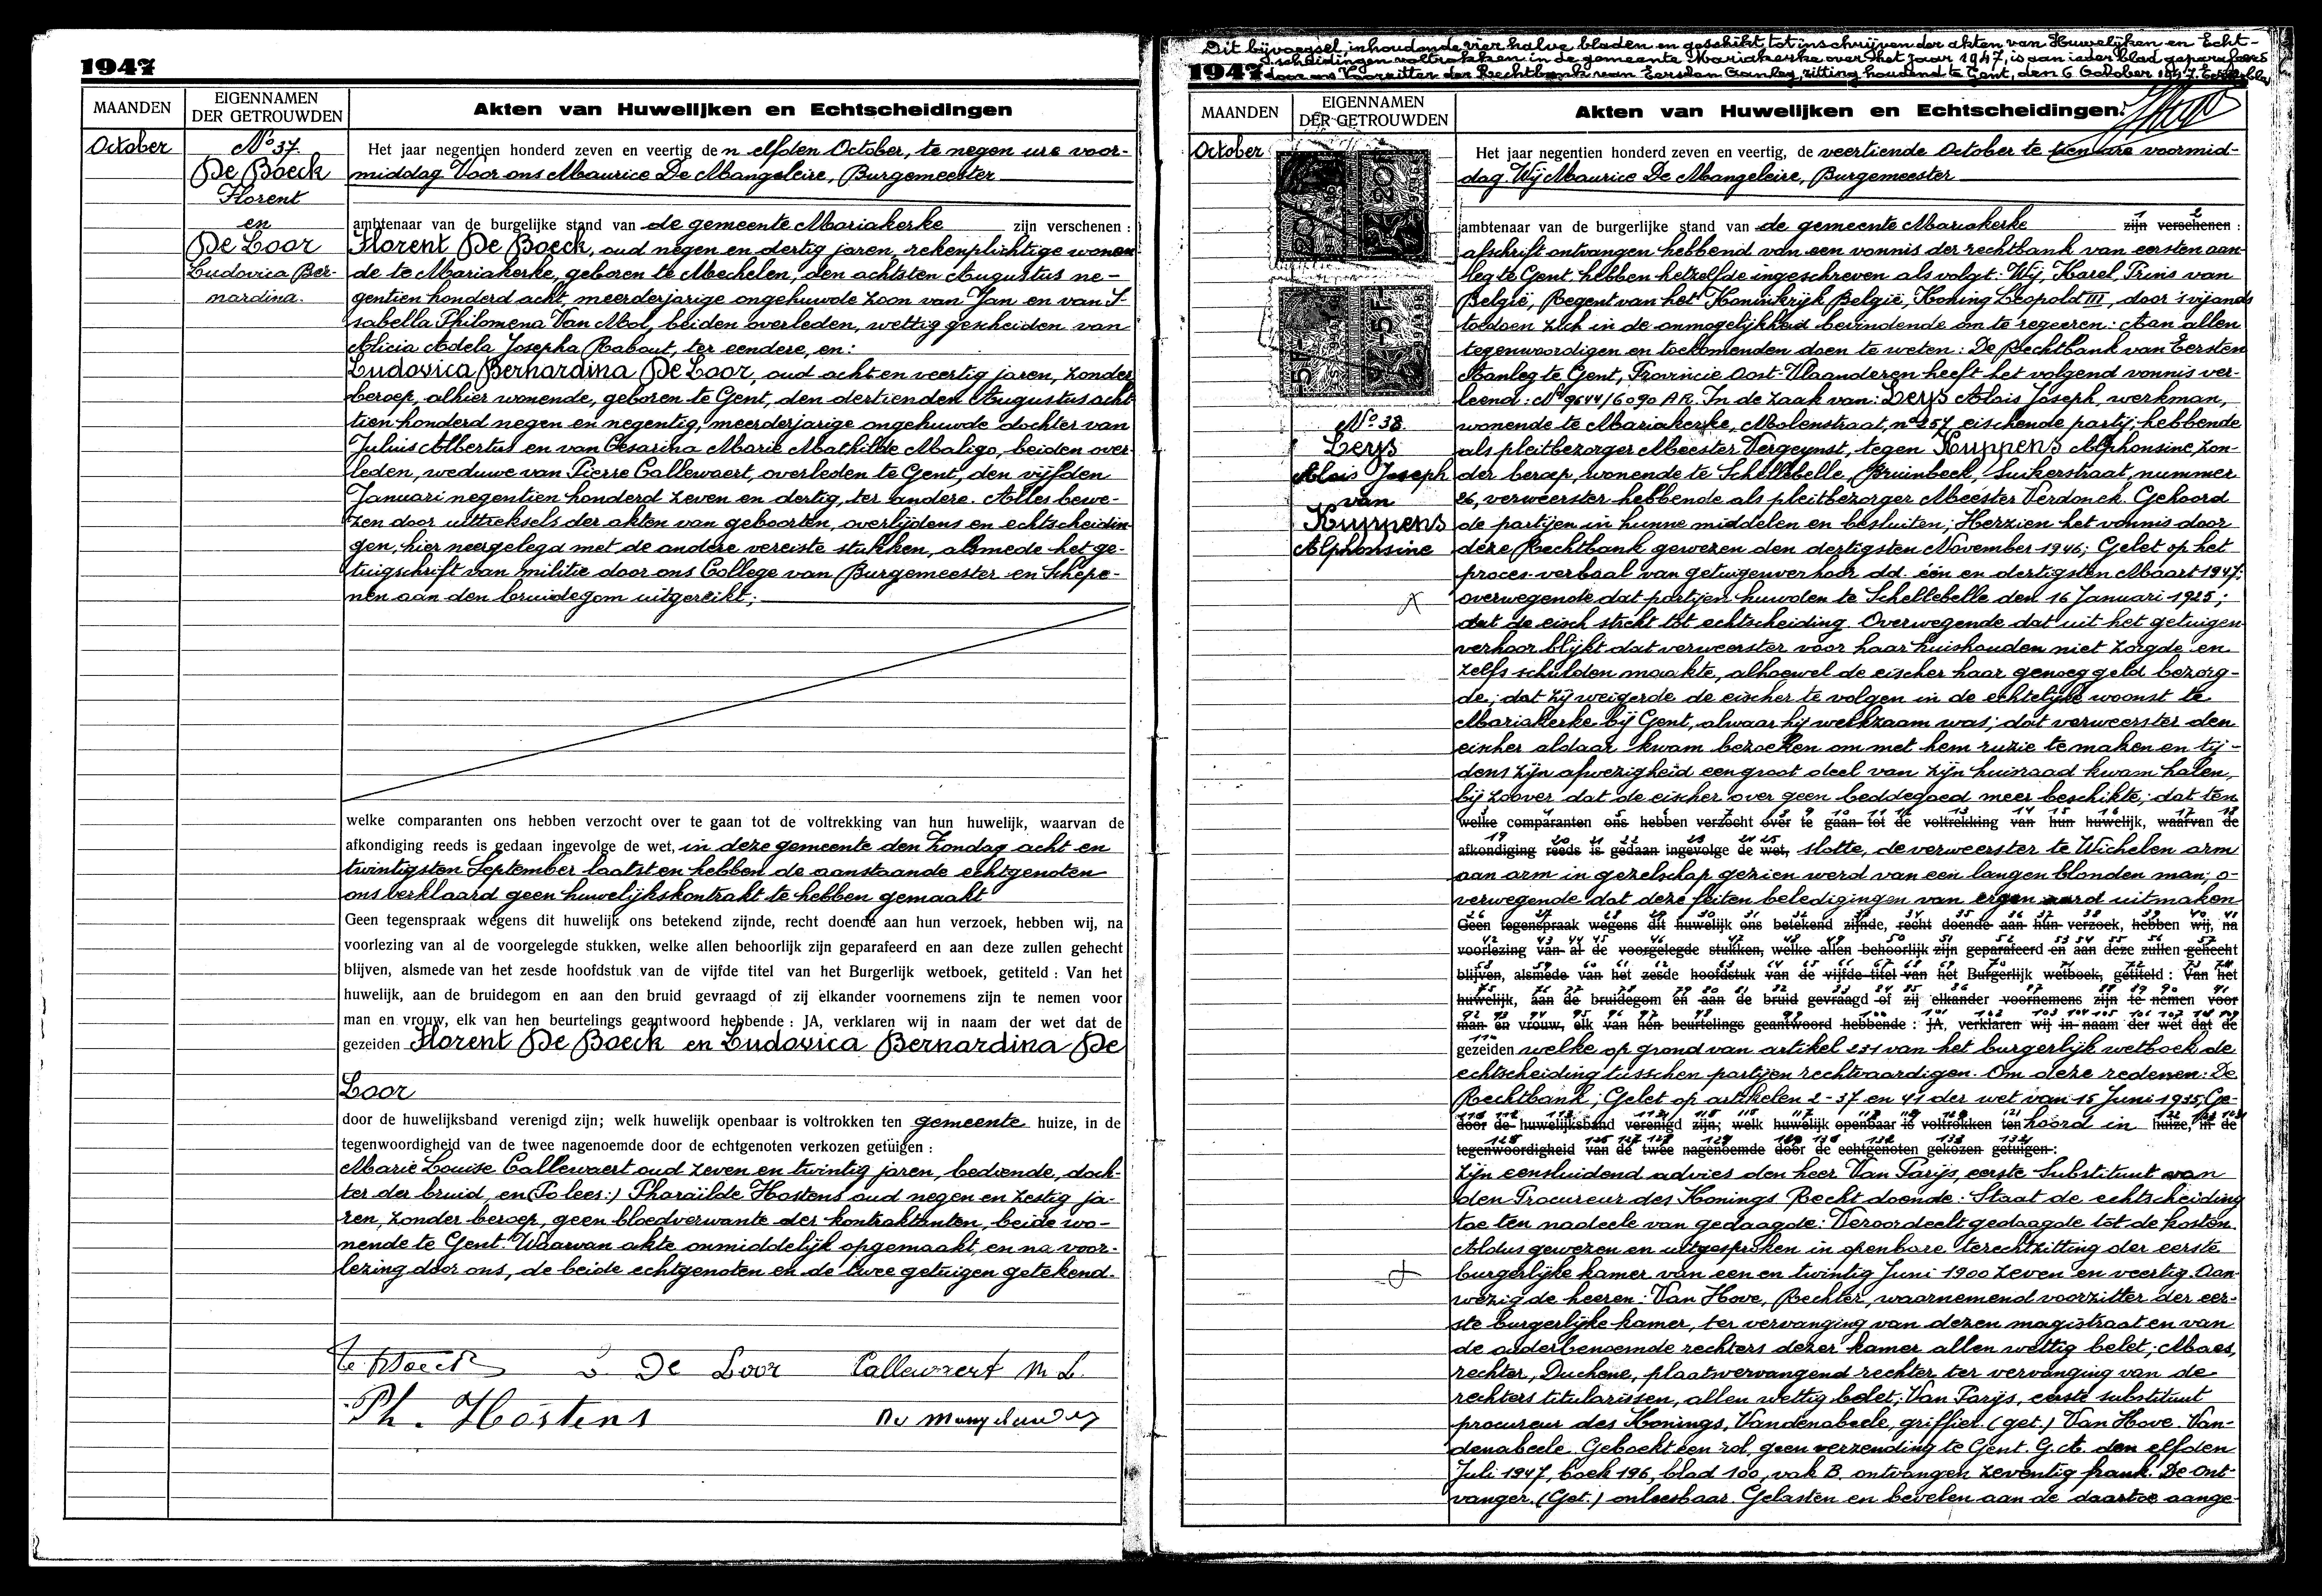 1947
MAANDEN
EIGENNAMEN
DER GETROUWDEN
Akten van Huwelijken en Echtscheidingen
October
No 37.
De Boeck
Florent
en
De Loor
Ludovica Ber-
nardina.
Het jaar negentien honderd zeven en veertig den elfden October, te negen ure voor-
middag Voor ons Maurice De Mangeleire, Burgemeester
ambtenaar van de burgelijke stand van de gemeente Mariakerke zijn verschenen :
Florent De Boeck, oud negen en dertig jaren, rekenplichtige wonen
de te Mariakerke, geboren te Mechelen, den achtsten Augustus ne-
gentien honderd acht, meerderjarige ongehuwde zoon van Jan en van I-
sabella Philomena Van Mol, beiden overleden, wettig gescheiden van
Alicia Adela Josepha Rabout, ter eendere, en:
Ludovica Bernardina De Loor, oud acht en veertig jaren, zonder
beroep, alhier wonende, geboren te Gent, den dertienden Augustus acht
tien honderd negen en negentig, meerderjarige ongehuwde dochter van
Julius Albertus en van Cesarina Marie Mathilde Maligo, beiden over-
leden, weduwe van Pierre Callewaert, overleden te Gent, den vijfden
Januari negentien honderd zeven en dertig, ter andere. Alles bewe-
zen door uittreksels der akten van geboorten, overlijdens en echtscheidin-
gen, hier neergelegd met de andere vereiste stukken, alsmede het ge-
tuigschrift van militie door ons College van Burgemeester en Schepe-
nen aan den bruidegom uitgereikt;
welke comparanten ons hebben verzocht over te gaan tot de voltrekking van hun huwelijk, waarvan de
afkondiging reeds is gedaan ingevolge de wet, in deze gemeente den Zondag acht en
twintigsten September laatst en hebben de aanstaande echtgenoten
ons verklaard geen huwelijkskontrakt te hebben gemaakt
Geen tegenspraak wegens dit huwelijk ons betekend zijnde, recht doende aan hun verzoek, hebben wij, na
voorlezing van al de voorgelegde stukken, welke allen behoorlijk zijn geparafeerd en aan deze zullen gehecht
blijven, alsmede van het zesde hoofdstuk van de vijfde titel van het Burgerlijk wetboek, getiteld : Van het
huwelijk, aan de bruidegom en aan den bruid gevraagd of zij elkander voornemens zijn te nemen voor
man en vrouw, elk van hen beurtelings geantwoord hebbende : JA, verklaren wij in naam der wet dat de
gezeiden Florent De Boeck en Ludovica Bernardina De
Loor
door de huwelijksband verenigd zijn; welk huwelijk openbaar is voltrokken ten gemeente huize, in de
tegenwoordigheid van de twee nagenoemde door de echtgenoten verkozen getuigen :
Marie Louise Callewaert oud zeven en twintig jaren, bediende, doch-
ter der bruid, en (Zo lees:) Pharaïlde Hostens oud negen en zestig ja-
ren, zonder beroep, geen bloedverwante der kontraktanten, beide wo-
nende te Gent. Waarvan akte onmiddelijk opgemaakt, en na voor-
lezing door ons, de beide echtgenoten en de twee getuigen getekend.
De Loor Callewaert M. L.
Ph. Hostens
Dit bijvoegsel, inhoudende vier halve bladen en geschikt tot inschrijven der akten van Huwelijken en Echt-
scheidingen voltrokken in de gemeente Mariakerke over het jaar 1947, is aan ieder blad geparafeerd
1947 door ons Voorzitter der Rechtbank van Eersten Aanleg, zitting houdend te Gent, den 6 October 1947.
MAANDEN
EIGENNAMEN
DER GETROUWDEN
Akten van Huwelijken en Echtscheidingen.
October
No 38.
Leys
Alois Joseph
van
Kuppens
Alphonsine
Het jaar negentien honderd zeven en veertig, de veertiende October te tien ure voormid-
dag. Wij Maurice De Mangeleire, Burgemeester
ambtenaar van de burgerlijke stand van de gemeente Mariakerke zijn verschenen :
afschrift ontvangen hebbend van een vonnis der rechtbank van eersten aan-
leg te Gent, hebben hetzelfde ingeschreven als volgt: Wij, Karel, Prins van
België, Regent van het Koninkrijk België, Koning Leopold III, door 's vijands
toedoen zich in de onmogelijkheid bevindende om te regeeren: Aan allen
tegenwoordigen en toekomenden doen te weten: De Rechtbank van Eersten
Aanleg te Gent, Provincie Oost-Vlaanderen heeft het volgend vonnis ver-
leend: No 9644/6090 A.R. In de zaak van: Leys Alois Joseph, werkman,
wonende te Mariakerke, Molenstraat, no 257, eischende partij, hebbende
als pleitbezorger Meester Vergeynst, tegen Kuppens Alphonsine, zon-
der beroep, wonende te Schellebelle, Bruinbeck, Suikerstraat, nummer
26, verweerster hebbende als pleitbezorger Meester Verdonck. Gehoord
de partijen in hunne middelen en besluiten; Herzien het vonnis door
deze Rechtbank gewezen den dertigsten November 1946; Gelet op het
proces-verbaal van getuigenverhoor dd. één en dertigsten Maart 1947;
overwegende dat partijen huwden te Schellebelle den 16 Januari 1925;
dat de eisch strekt tot echtscheiding. Overwegende dat uit het getuigen
verhoor blijkt dat verweerster voor haar huishouden niet zorgde en
zelfs schulden maakte, alhoewel de eischer haar genoeg geld bezorg-
de; dat zij weigerde de eischer te volgen in de echtelijke woonst te
Mariakerke bij Gent, alwaar hij werkzaam was; dat verweerster den
eischer aldaar kwam bezoeken om met hem ruzie te maken en tij-
dens zijn afwezigheid een groot deel van zijn huisraad kwam halen,
bij zoover dat de eischer over geen beddegoed meer beschikte; dat ten
welke comparanten ons hebben verzocht over te gaan tot de voltrekking van hun huwelijk, waarvan de
afkondiging reeds is gedaan ingevolge de wet, slotte, de verweerster te Wichelen arm
aan arm in gezelschap gezien werd van een langen blonden man; o-
verwegende dat deze feiten beledigingen van ergen aard uitmaken
Geen tegenspraak wegens dit huwelijk ons betekend zijnde, recht doende aan hun verzoek, hebben wij, na
voorlezing van al de voorgelegde stukken, welke allen behoorlijk zijn geparafeerd en aan deze zullen gehecht
blijven, alsmede van het zesde hoofdstuk van de vijfde titel van het Burgerlijk wetboek, getiteld : Van het
huwelijk, aan de bruidegom en aan de bruid gevraagd of zij elkander voornemens zijn te nemen voor
man en vrouw, elk van hen beurtelings geantwoord hebbende : JA, verklaren wij in naam der wet dat de
gezeiden welke op grond van artikel 231 van het burgerlijk wetboek de
echtscheiding tusschen partijen rechtvaardigen. Om deze redenen: De
Rechtbank; Gelet op artikelen 2-37 en 41 der wet van 15 Juni 1935, Ge-
door de huwelijksband verenigd zijn; welk huwelijk openbaar is voltrokken ten hoord in huize, in de
tegenwoordigheid van de twee nagenoemde door de echtgenoten gekozen getuigen :
zijn eensluidend advies den heer Van Parijs, eerste Substituut van
den Procureur des Konings Recht doende: Staat de echtscheiding
toe ten nadeele van gedaagde: Veroordeelt gedaagde tot de kosten.
Aldus gewezen en uitgesproken in openbare terechtzitting der eerste
burgerlijke kamer van een en twintig Juni 1900 zeven en veertig. Aan-
wezig de heeren: Van Hove, Rechter, waarnemend voorzitter der eer-
ste burgerlijke kamer, ter vervanging van dezen magistraat en van
de ouderbenoemde rechters dezer kamer allen wettig belet; Maes,
rechter, Duchene, plaatsvervangend rechter, ter vervanging van de
rechters titularissen, allen wettig belet; Van Parijs, eerste substituut
procureur des Konings, Vandenabeele, griffier. (get.) Van Hove. Van-
denabeele. Geboekt een rol, geen verzending te Gent. G.A. den elfden
Juli 1947, boek 196, blad 100, vak B. ontvangen zeventig frank. De Ont-
vanger. (Get.) onleesbaar. Gelasten en bevelen aan de daartoe aange-